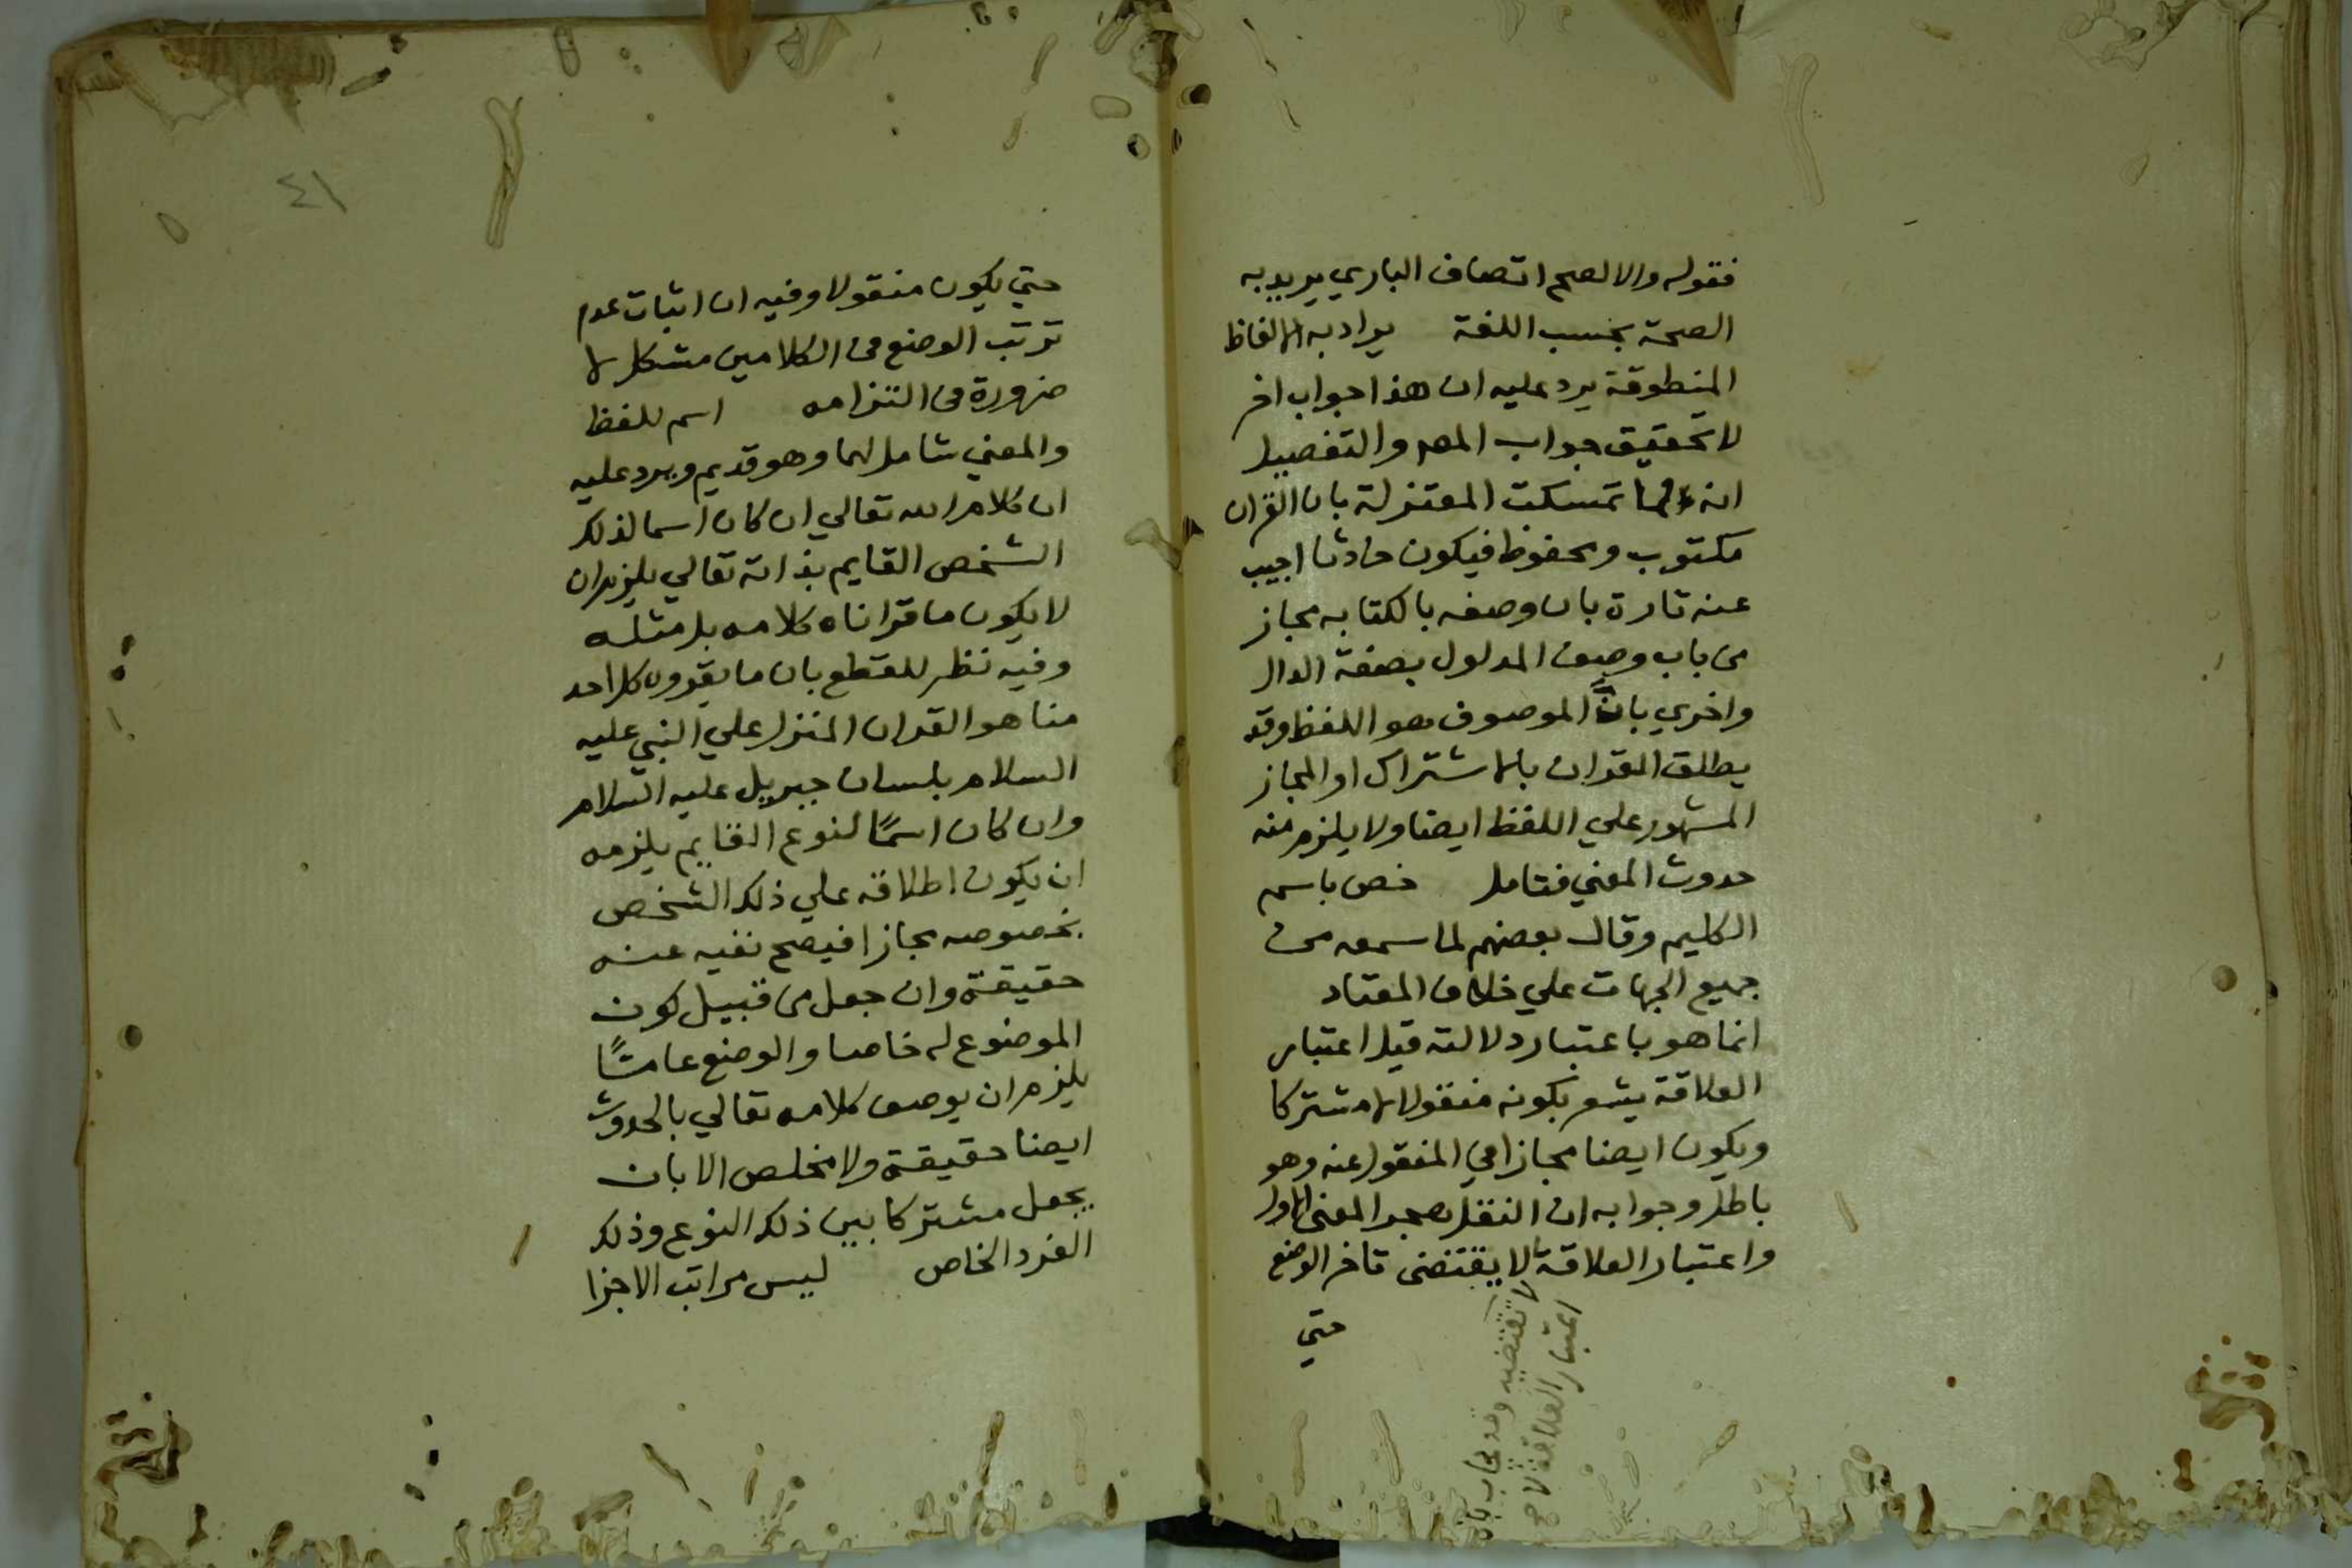 فقوله والا لصح اتصاف الباري يريد به
الصحة بحسب اللغة يراد به الالفاظ
المنطوقة يرد عليه ان هذا جواب اخر
لا تحقيق جواب المص والتفصيل
انه لما تمسكت المعتزلة بان القران
مكتوب ومحفوظ فيكون حادثا اجيب
عنه تارة بان وصفه بالكتابه مجاز
من باب وصف المدلول بصفة الدال
واخري بانَّ الموصوف هو اللفظ وقد
يطلق القران بالاشتراك او المجاز
المشهور علي اللفظ ايضا ولا يلزم منه
حدوث المعني فتامل خص باسم
الكليم وقال بعضهم لما سمعه من
جميع الجهات علي خلاف المعتاد
انما هو باعتبار دلالته قيل اعتبار
العلاقة يشعر بكونه منقولا لا مشتركا
ويكون ايضا مجازا في المنقول عنه وهو
باطل وجوابه ان النقل هجر المعنى الاول
واعتبار العلاقة لا يقتضى تاخر الوضع
حتي
لا تقتضيه وقد يجاب بان
اعتبار العلاقة لا
٤١
حتي يكون منقولا وفيه ان اثبات عدم
ترتب الوضع من الكلامين مشكل لا
ضرورة في التزامه اسم للفظ
والمعني شامل لهما وهو قديم ويرد عليه
ان كلام الله تعالي ان كان اسما لذلك
الشخص القايم بذاته تعالي يلزم ان
لا يكون ما قراناه كلامه بل مثله
وفيه نظر للقطع بان ما يقروه كل احد
منا هو القران المنزل علي النبي عليه
السلام بلسان جبريل عليه السلام
وان كان اسمًا لنوع القايم يلزمه
ان يكون اطلاقه علي ذلك الشخص
بخصوصه مجازا فيصح نفيه عنه
حقيقة وان جعل من قبيل كون
الموضوع له خاصا والوضع عامًا
يلزم ان يوصف كلامه تعالي بالحدوث
ايضا حقيقة ولا مخلص الا بان
يجعل مشتركا بين ذلك النوع وذلك
الفرد الخاص ليس مراتب الاجزا